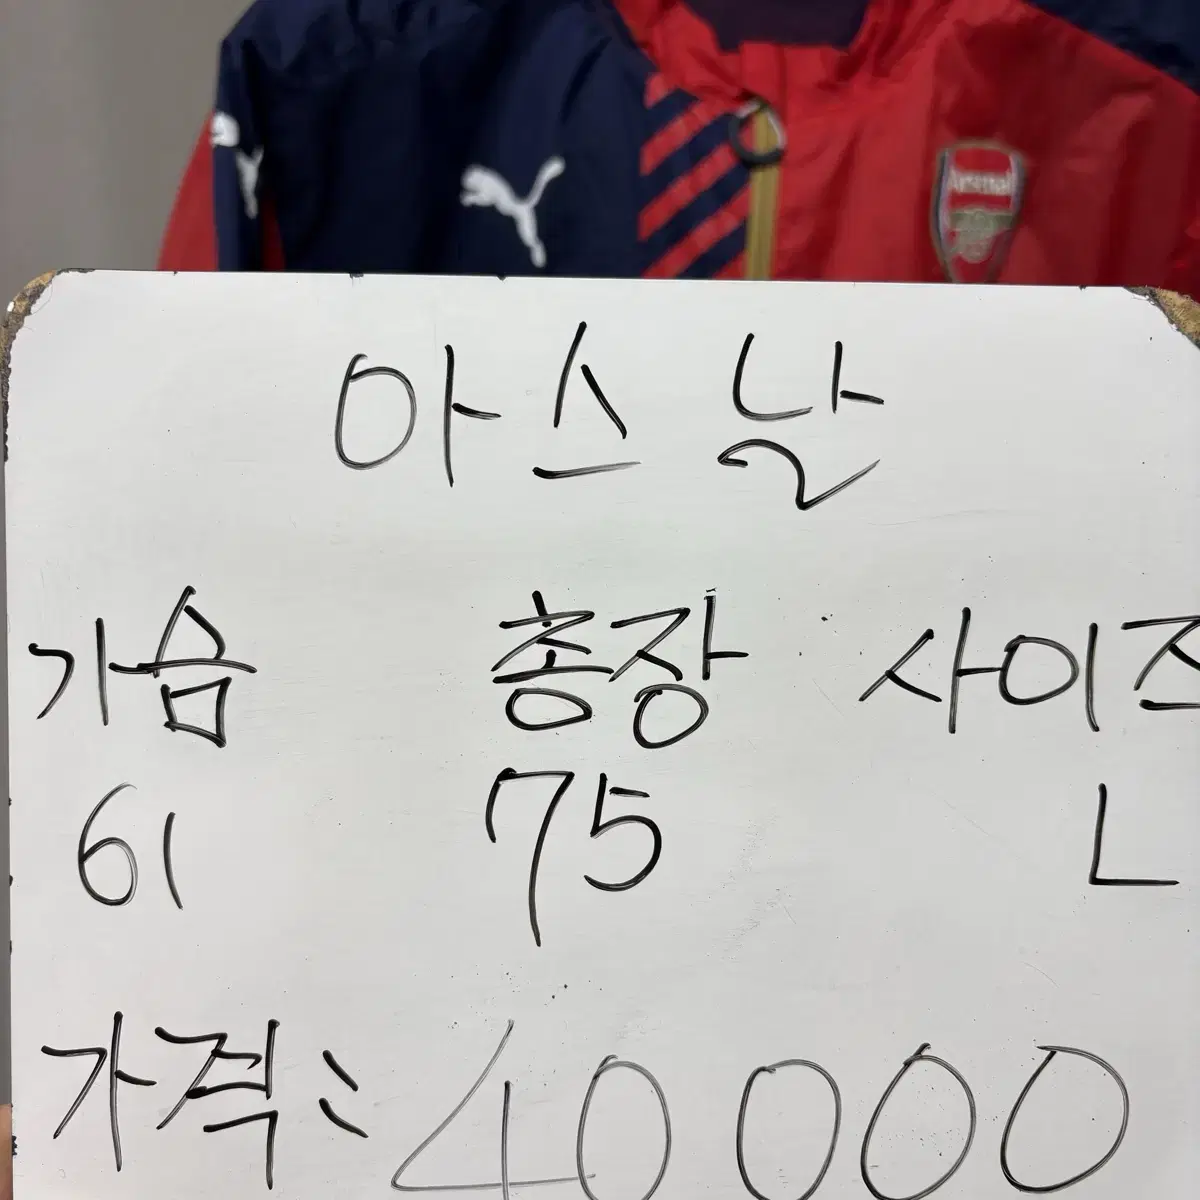 Arsenal
아스날
가슴 총장 사이즈
61 75 L
가격: 40000